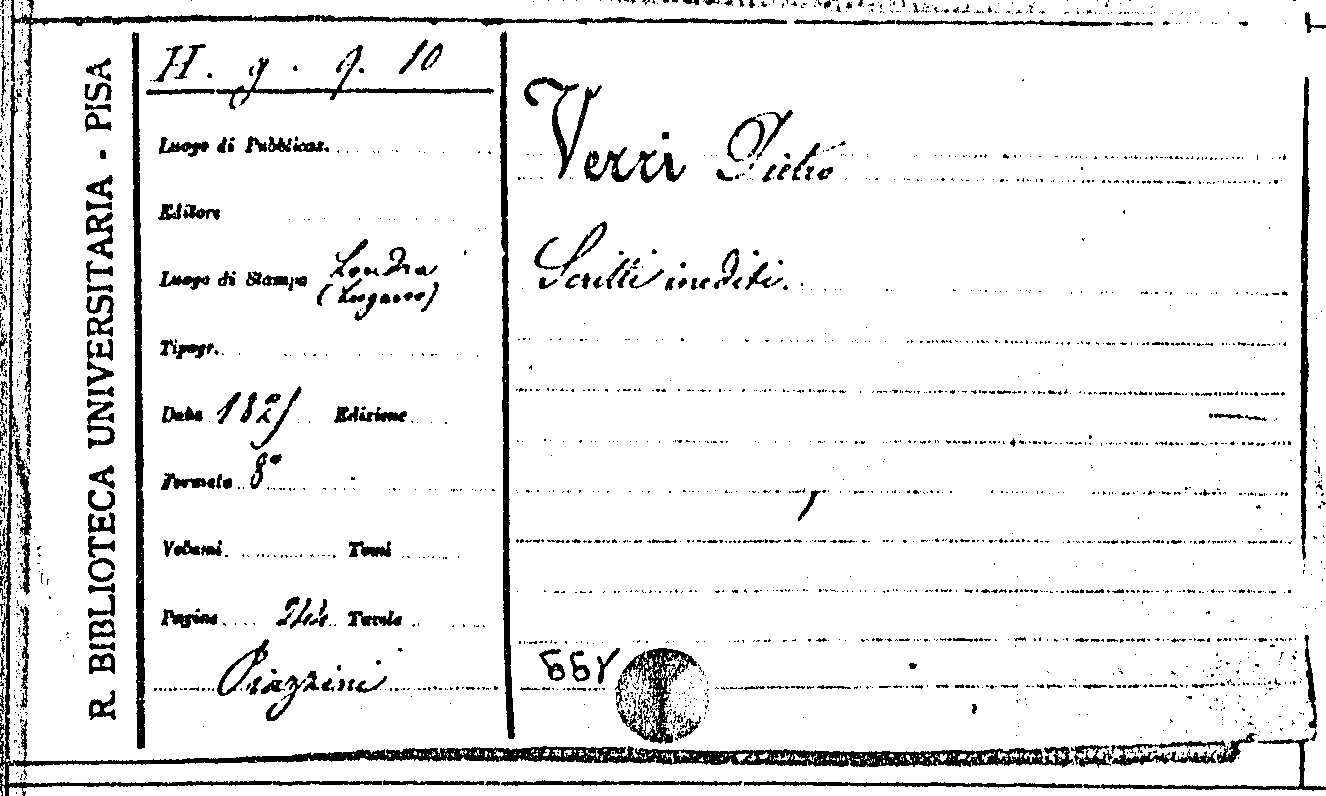 R. BIBLIOTECA UNIVERSITARIA - PISA
H. g. 9. 10
Luogo di Pubblicaz.
Editore
Luogo di Stampa Londra
(Lugano)
Tipogr.
Data 1825 Edizione
Formato 8°
Volumi Tomi
Pagine 244 Tavole
Piazzini
Verri Pietro
Scritti inediti.